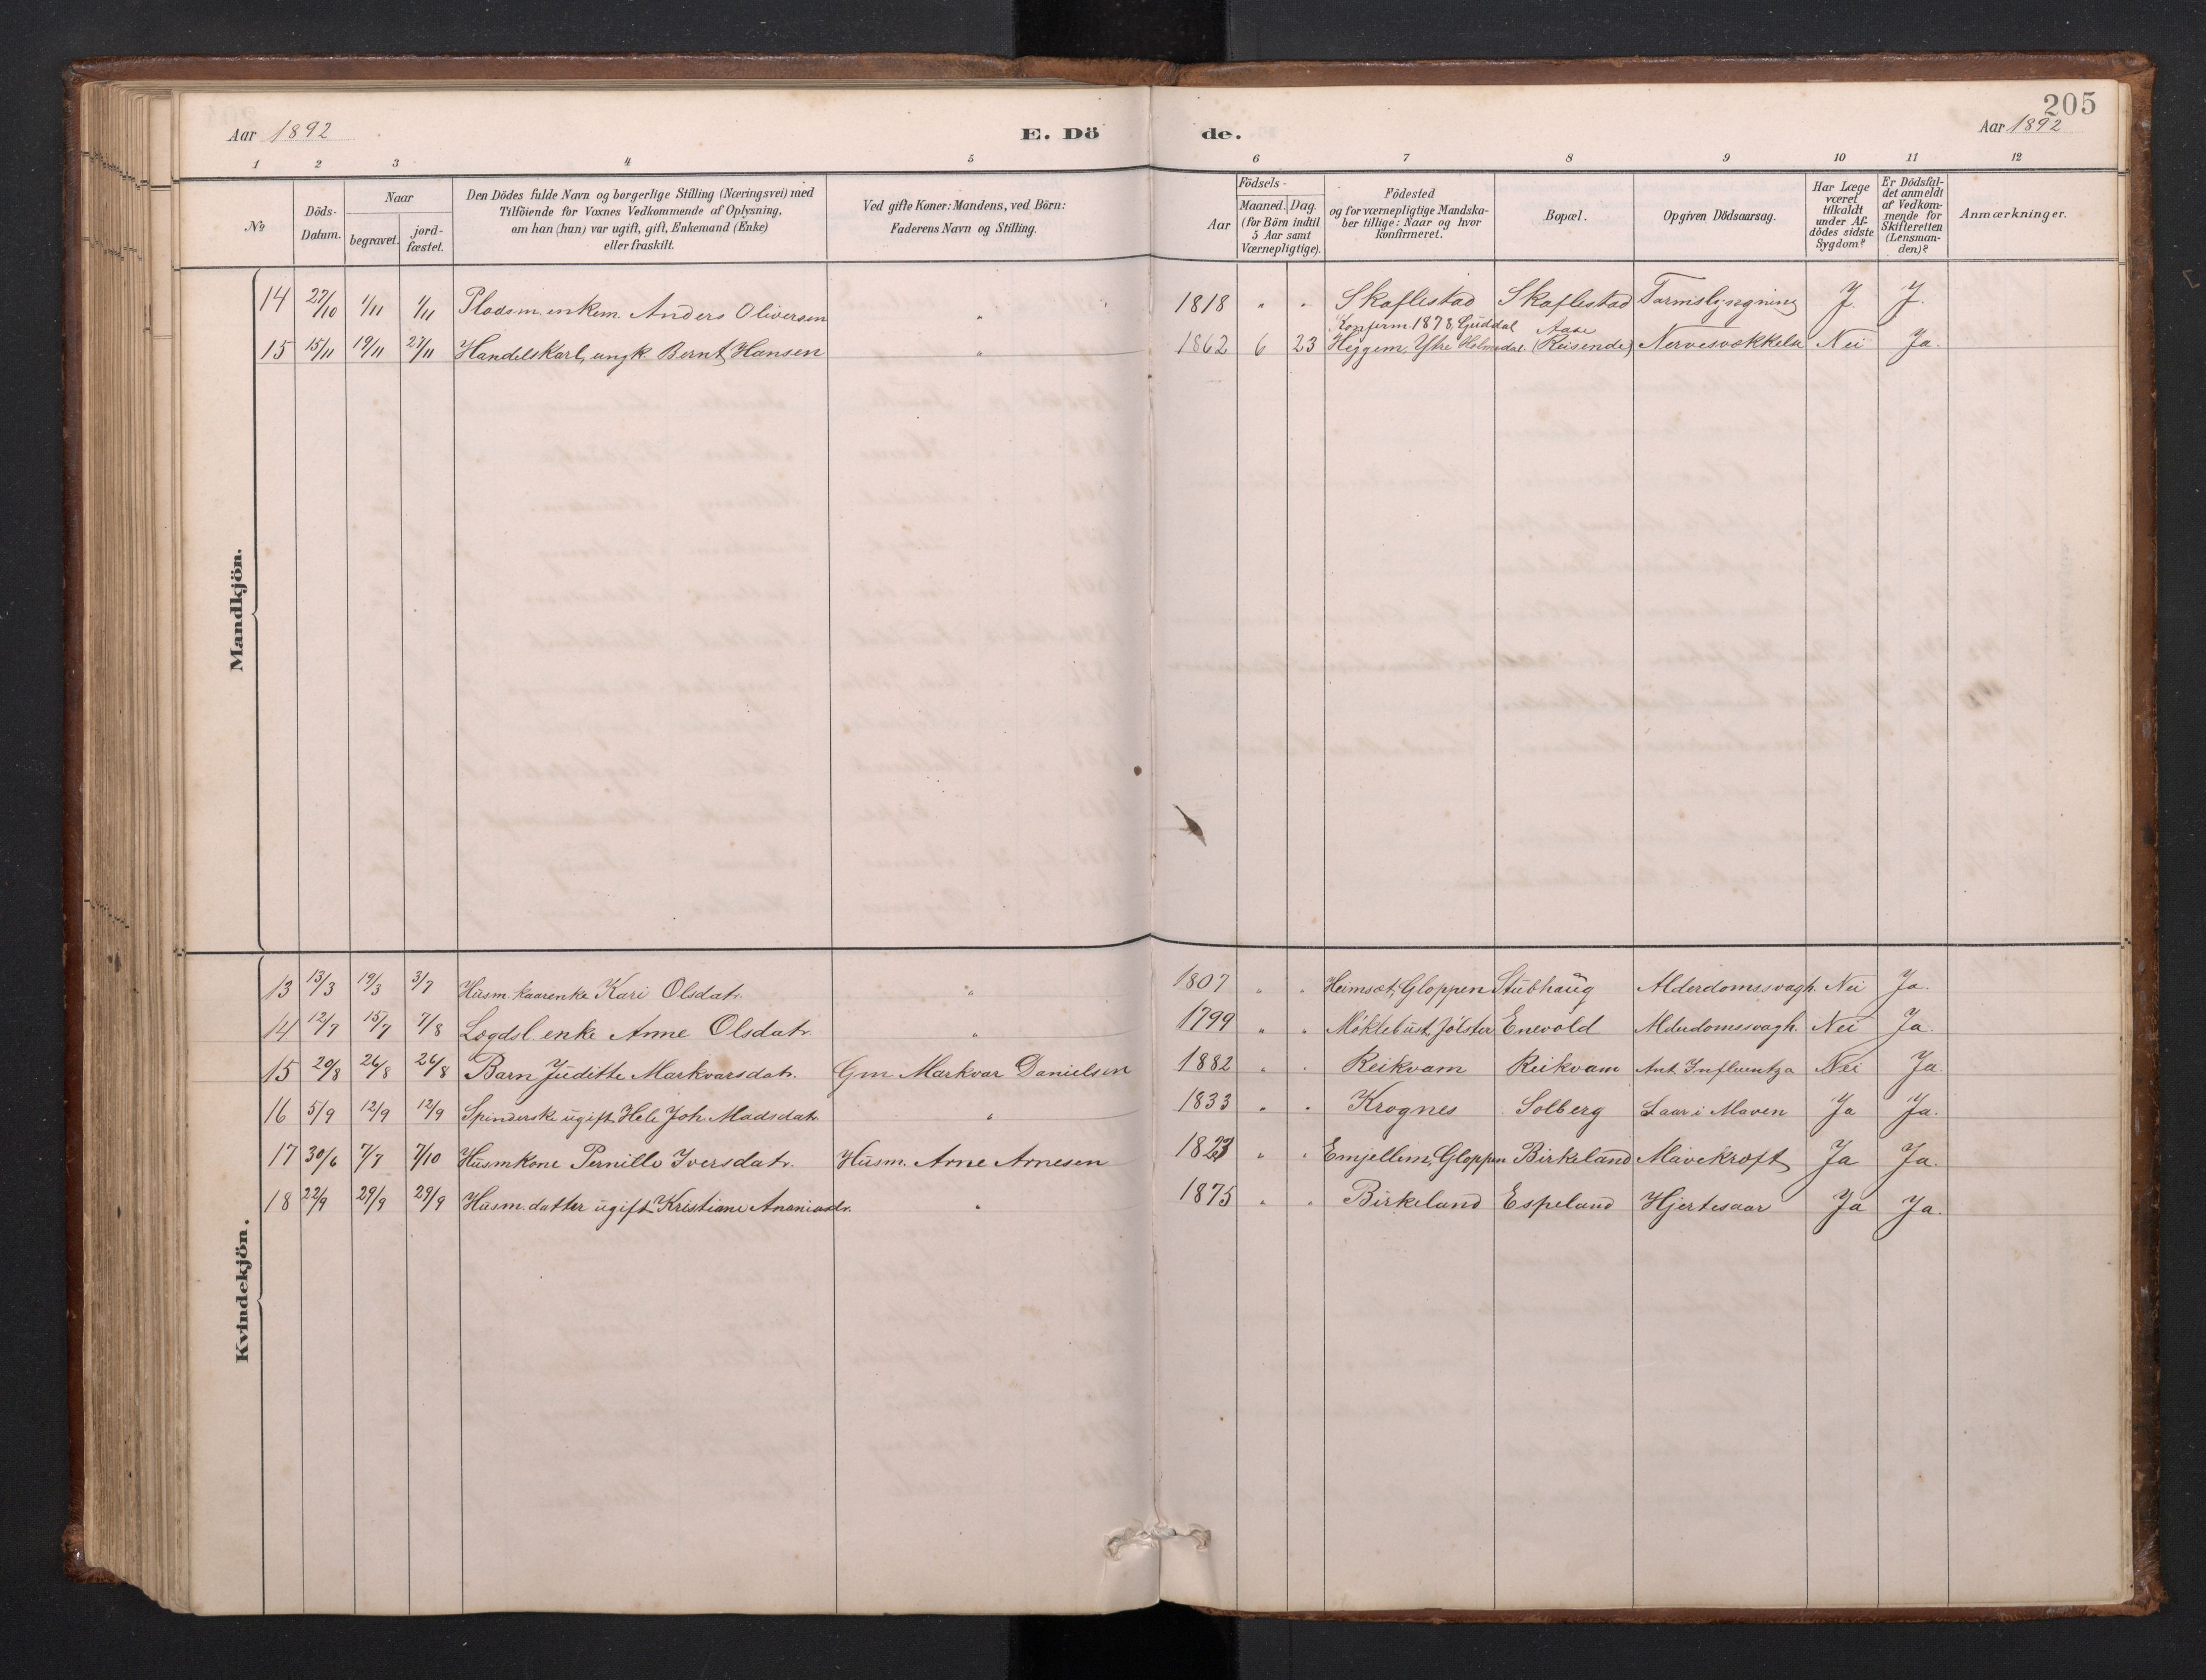 205
Aar 1892 E. Dö de. Aar 1892
1 2 3 4 5 6 7 8 9 10 11 12
No
Döds-Datum.
Naar
begravet. jord-fæstet.
Den Dödes fulde Navn og borgerlige Stilling (Næringsvei) med
Tilföiende for Voxnes Vedkommende af Oplysning,
om han (hun) var ugift, gift, Enkemand (Enke)
eller fraskilt.
Ved gifte Koner: Mandens, ved Börn:
Faderens Navn og Stilling.
Födsels-
Aar Maaned. Dag.
(for Börn indtil
5 Aar samt
Værnepligtige).
Födested
og for værnepligtige Mandska-
ber tillige: Naar og hvor
konfirmeret.
Bopæl.
Opgiven Dödsaarsag.
Har Læge
været
tilkaldt
under Af-
dödes sidste
Sygdom?
Er Dödsfal-
det anmeldt
af Vedkom-
mende for
Skifteretten
(Lensman-
den)?
Anmærkninger.
Mandkjön.
14 27/10 1/11 1/11 Pladsm. enkem. Anders Oliversen " 1818 " " Skaflestad Skaflestad Tarmslyngning J. J.
Konfirm. 1878, Guddal Aase
15 15/11 19/11 27/11 Handelskarl, ungk. Bernt Hansen " 1862 6 23 Heggem, Ytre Holmedal (Reisende) Nervesvækkelse Nei Ja.
Kvindekjön.
13 13/3 19/3 3/7 Husm. kaarenke Kari Olsdatr. " 1807 " " Heimsæt, Gloppen Stubhaug Alderdomssvagh. Nei Ja.
14 12/7 15/7 7/8 Logdsl. enke Anne Olsdatr. " 1799 " " Møklebust, Jølster Enevold Alderdomssvagh. Nei Ja.
15 20/8 26/8 26/8 Barn Juditte Markvarsdatr. Gm Markvar Danielsen 1882 " " Reikvam Reikvam Ant. Influentza Nei Ja.
16 5/9 12/9 12/9 Spinderske ugift Hele Joh. Madsdatr. " 1833 " " Krognes Solberg Saar i Maven Ja Ja.
17 30/6 7/7 7/10 Husmkone Pernille Iversdatr. Husm. Arne Arnesen 1823 " " Emjellem, Gloppen Birkeland Mavekræft Ja Ja.
18 22/9 29/9 29/9 Husm. datter ugift Kristiane Ananiasdr. " 1875 " " Birkeland Espeland Hjertesaar Ja Ja.